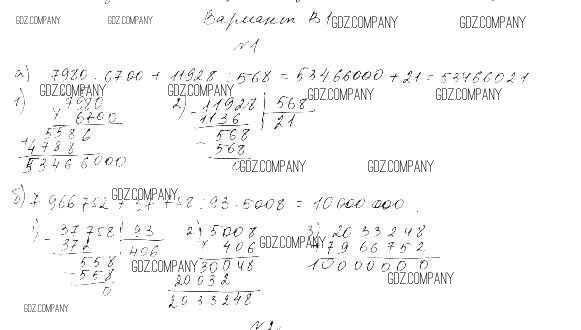 GDZ.COMPANY GDZ.COMPANY Вариант В1 GDZ.COMPANY GDZ.COMPANY
№1
а) 7980 · 6700 + 11928 : 568 = 53466000 + 21 = 53466021
GDZ.COMPANY GDZ.COMPANY GDZ.COMPANY GDZ.COMPANY
1) 7980 2) - 11928 | 568
× 6700 1136 | 21
5586 - 568
+ 4788 568
53466000 0
GDZ.COMPANY GDZ.COMPANY
GDZ.COMPANY
б) 7966752 + 37758 : 93 · 5008 = 10000000.
1) - 37758 | 93 2) 5008 3) 2033248
372 | 406 × 406 + 7966752
- 558 30048 10000000
558 20032
0 2033248
GDZ.COMPANY GDZ.COMPANY GDZ.COMPANY
GDZ.COMPANY
№2